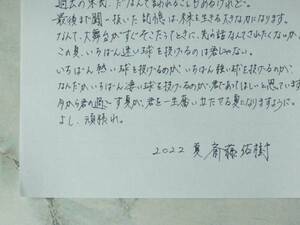 過去の栄光、だなんて言われることもあるけれど。
最後まで闘い抜いた記憶は、未来を生きる大きな力になります。
なんて、大舞台がすぐそこだというときに、先の話なんてされたくないか。
この夏、いちばん速い球を投げるのは君じゃない。
いちばん熱い球を投げるのが、いちばん強い球を投げるのが、
なんだかいちばん凄い球を投げるのが君であってほしいと思っています
今から君の過ごす夏が、君を一生奮い立たせる夏になりますように。
よし、頑張れ。
2022 夏 斎藤佑樹